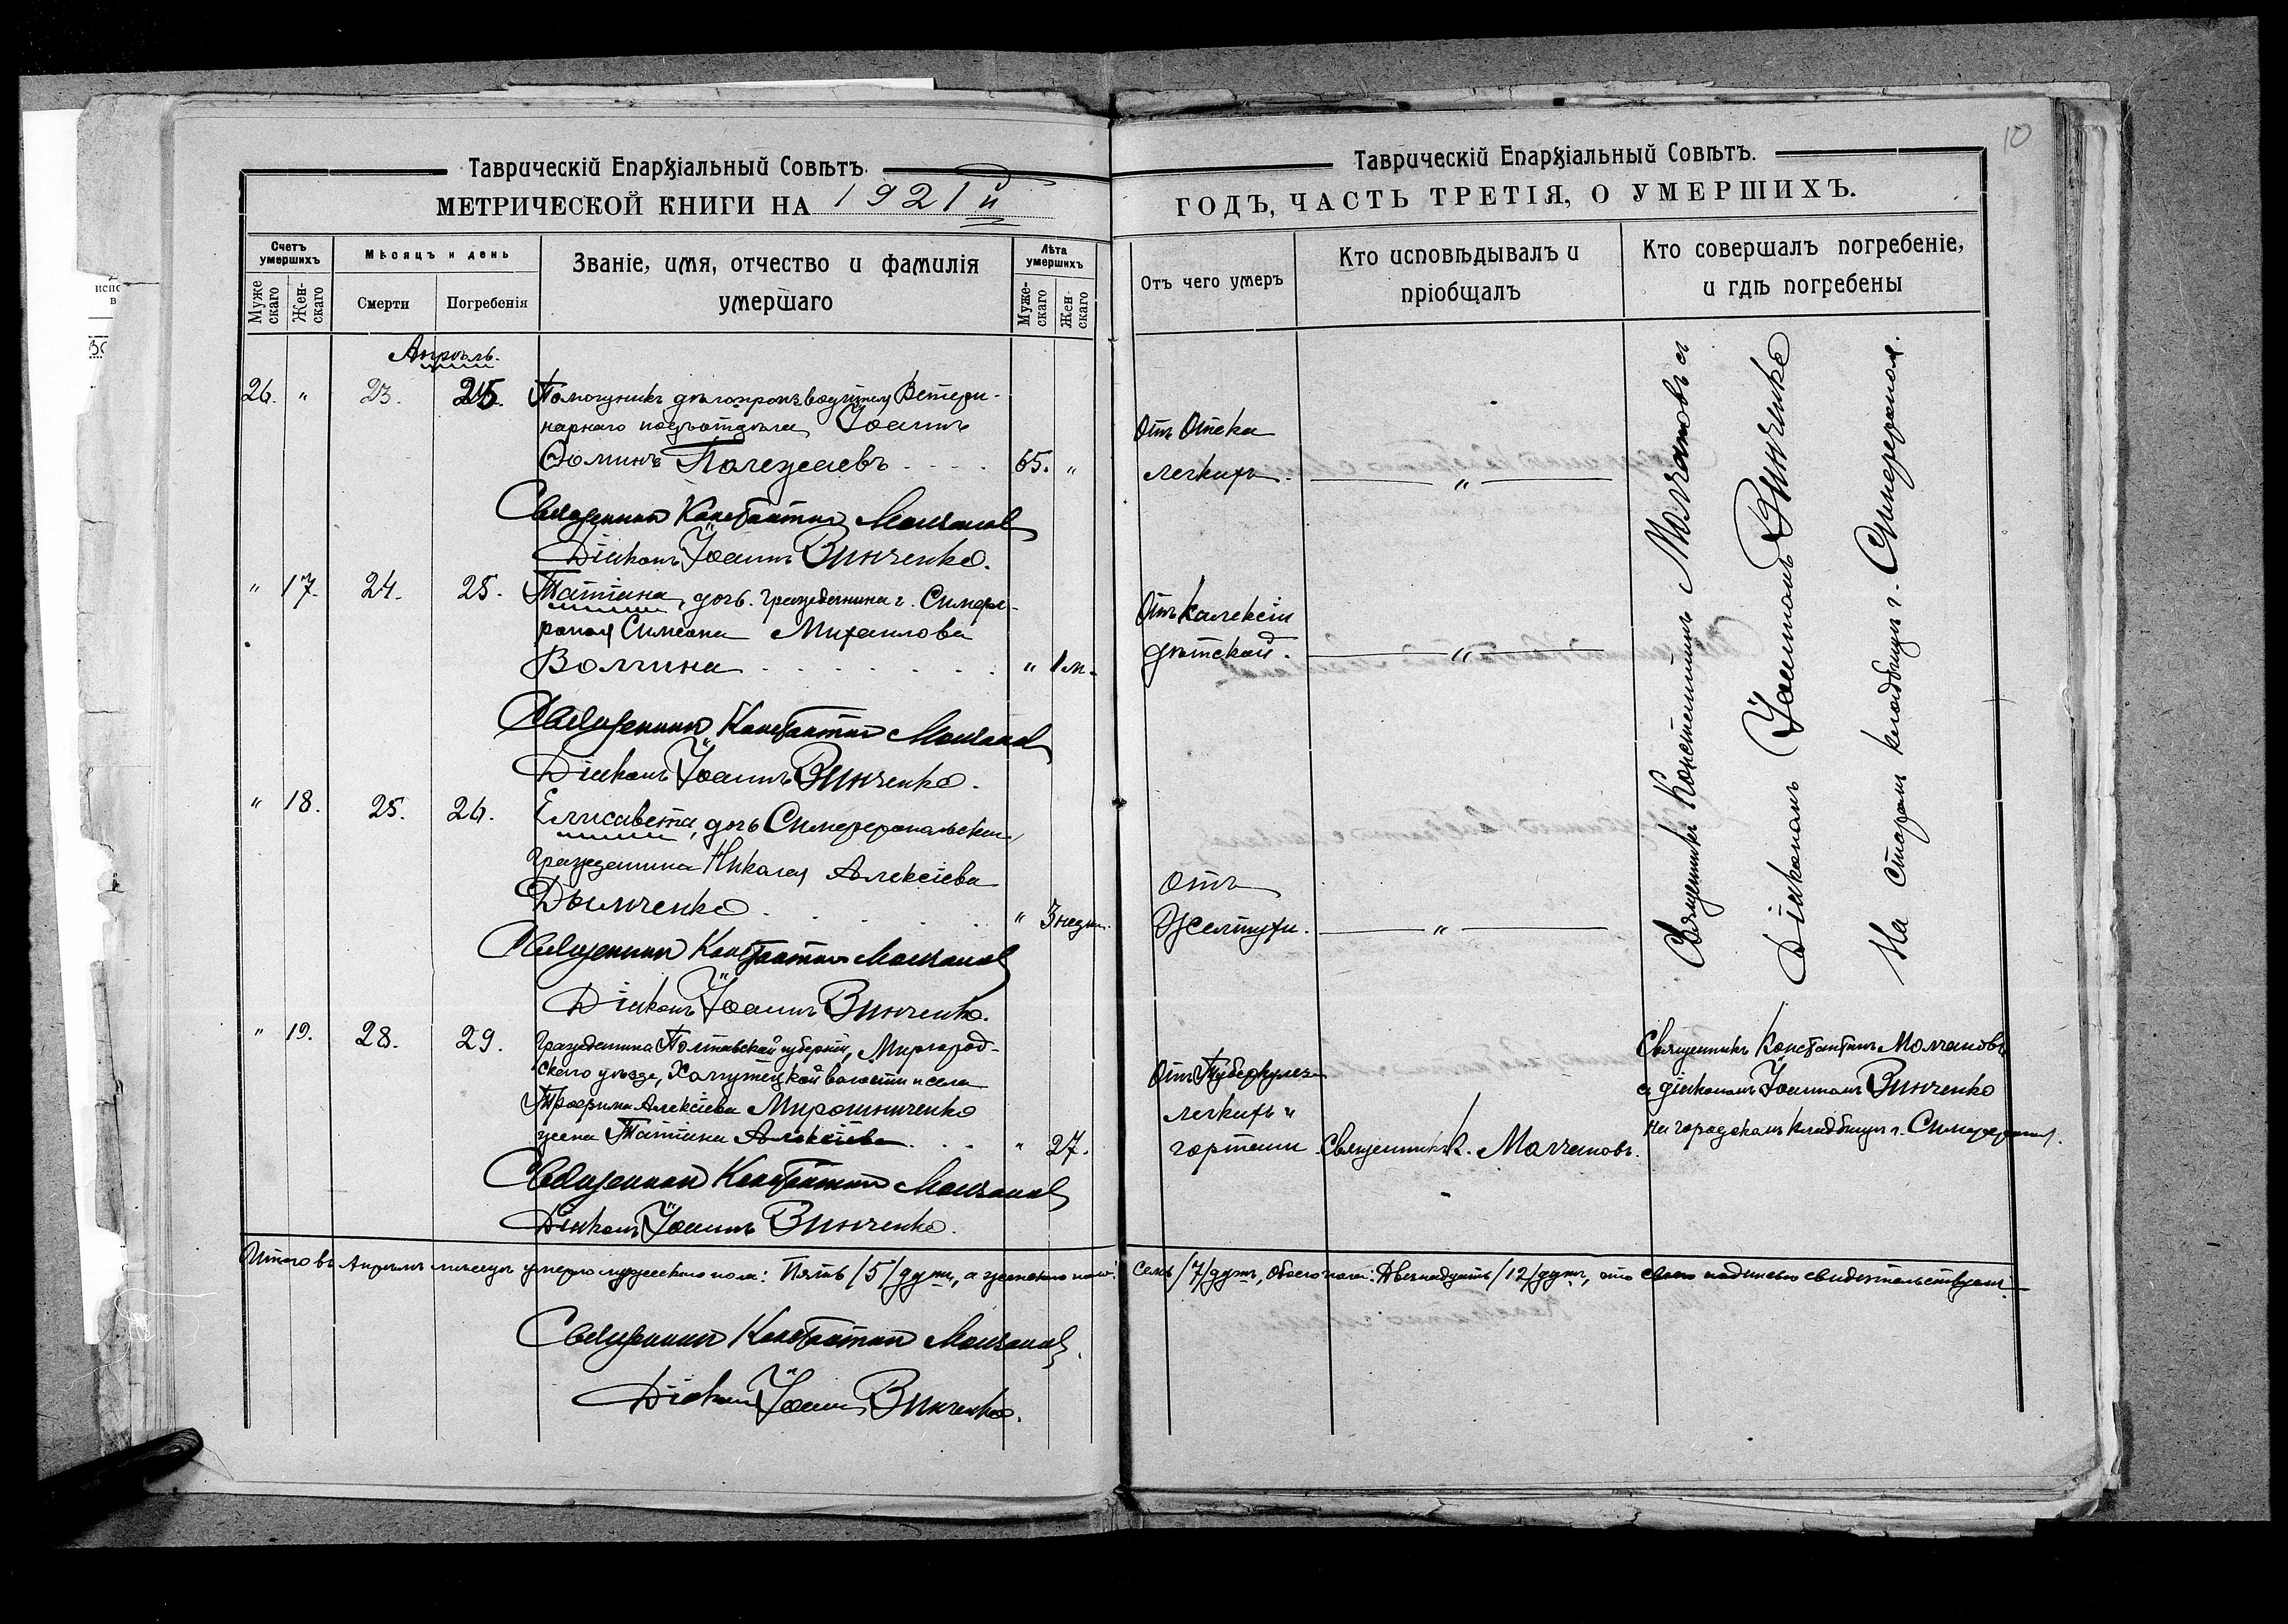 Таврическій Епархіальный Совѣтъ.
МЕТРИЧЕСКОЙ КНИГИ НА 1921й
Счетъ умершихъ
Муже скаго
Жен- скаго
Мѣсяцъ и день
Смерти
Погребенія
Званіе, имя, отчество и фамилія
умершаго
Лѣта умершихъ
Муже- скаго
Жен- скаго
Апрѣль.
26. " 23. 25. Помощникъ дѣлопроизводителя Ветери-
нарнаго подъотдѣла Іоаннъ
Ѳоминъ Полежаевъ . . . . 65. "
Священникъ Константинъ Молчановъ
Діаконъ Іоаннъ Винченко.
" 17. 24. 25. Татіана, дочь гражданина г. Симфе-
рополя Симеона Михаилова
Волгина . . . . . . . " 1 м.
Священникъ Константинъ Молчановъ
Діаконъ Іоаннъ Винченко.
" 18. 25. 26. Елисавета, дочь Симферопольскаго
гражданина Николая Алексіева
Дымченко . . . . . " 3 недѣли.
Священникъ Константинъ Молчановъ
Діаконъ Іоаннъ Винченко.
" 19. 28. 29. Гражданина Полтавской губерніи, Миргород-
скаго уѣзда, волости и села
Трофима Алексіева Мирошниченко
жена Татіана Алексіева . . . " 27.
Священникъ Константинъ Молчановъ
Діаконъ Іоаннъ Винченко.
Итого въ Апрѣлѣ мѣсяцѣ умерло мужескаго пола: Пять /5/ душъ, а женскаго пола:
Священникъ Константинъ Молчановъ.
Діаконъ Іоаннъ Винченко.
10
Таврическій Епархіальный Совѣтъ.
ГОДЪ, ЧАСТЬ ТРЕТІЯ, О УМЕРШИХЪ.
Отъ чего умеръ
Кто исповѣдывалъ и
пріобщалъ
Кто совершалъ погребеніе,
и гдѣ погребены
Отъ Отека
легкихъ. "
Отъ
дѣтской. "
Отъ
Желтухи. "
Священникъ Константинъ Молчановъ съ
Діакономъ Іоанномъ Винченко
На старомъ кладбищѣ г. Симферополя.
Отъ Туберкулеза
легкихъ и
гортани Священникъ К. Молчановъ.
Священникъ Константинъ Молчановъ
съ діакономъ Іоанномъ Винченко
на городскомъ кладбищѣ г. Симферополя.
Семь /7/ душъ, обоего пола: Двѣнадцать /12/ душъ, что своею подписью свидѣтельствуемъ.